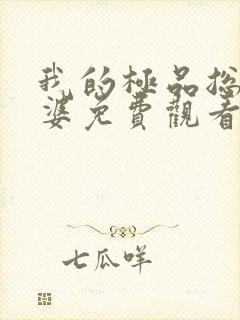 我的極品總
婆免費觀看
七瓜咩